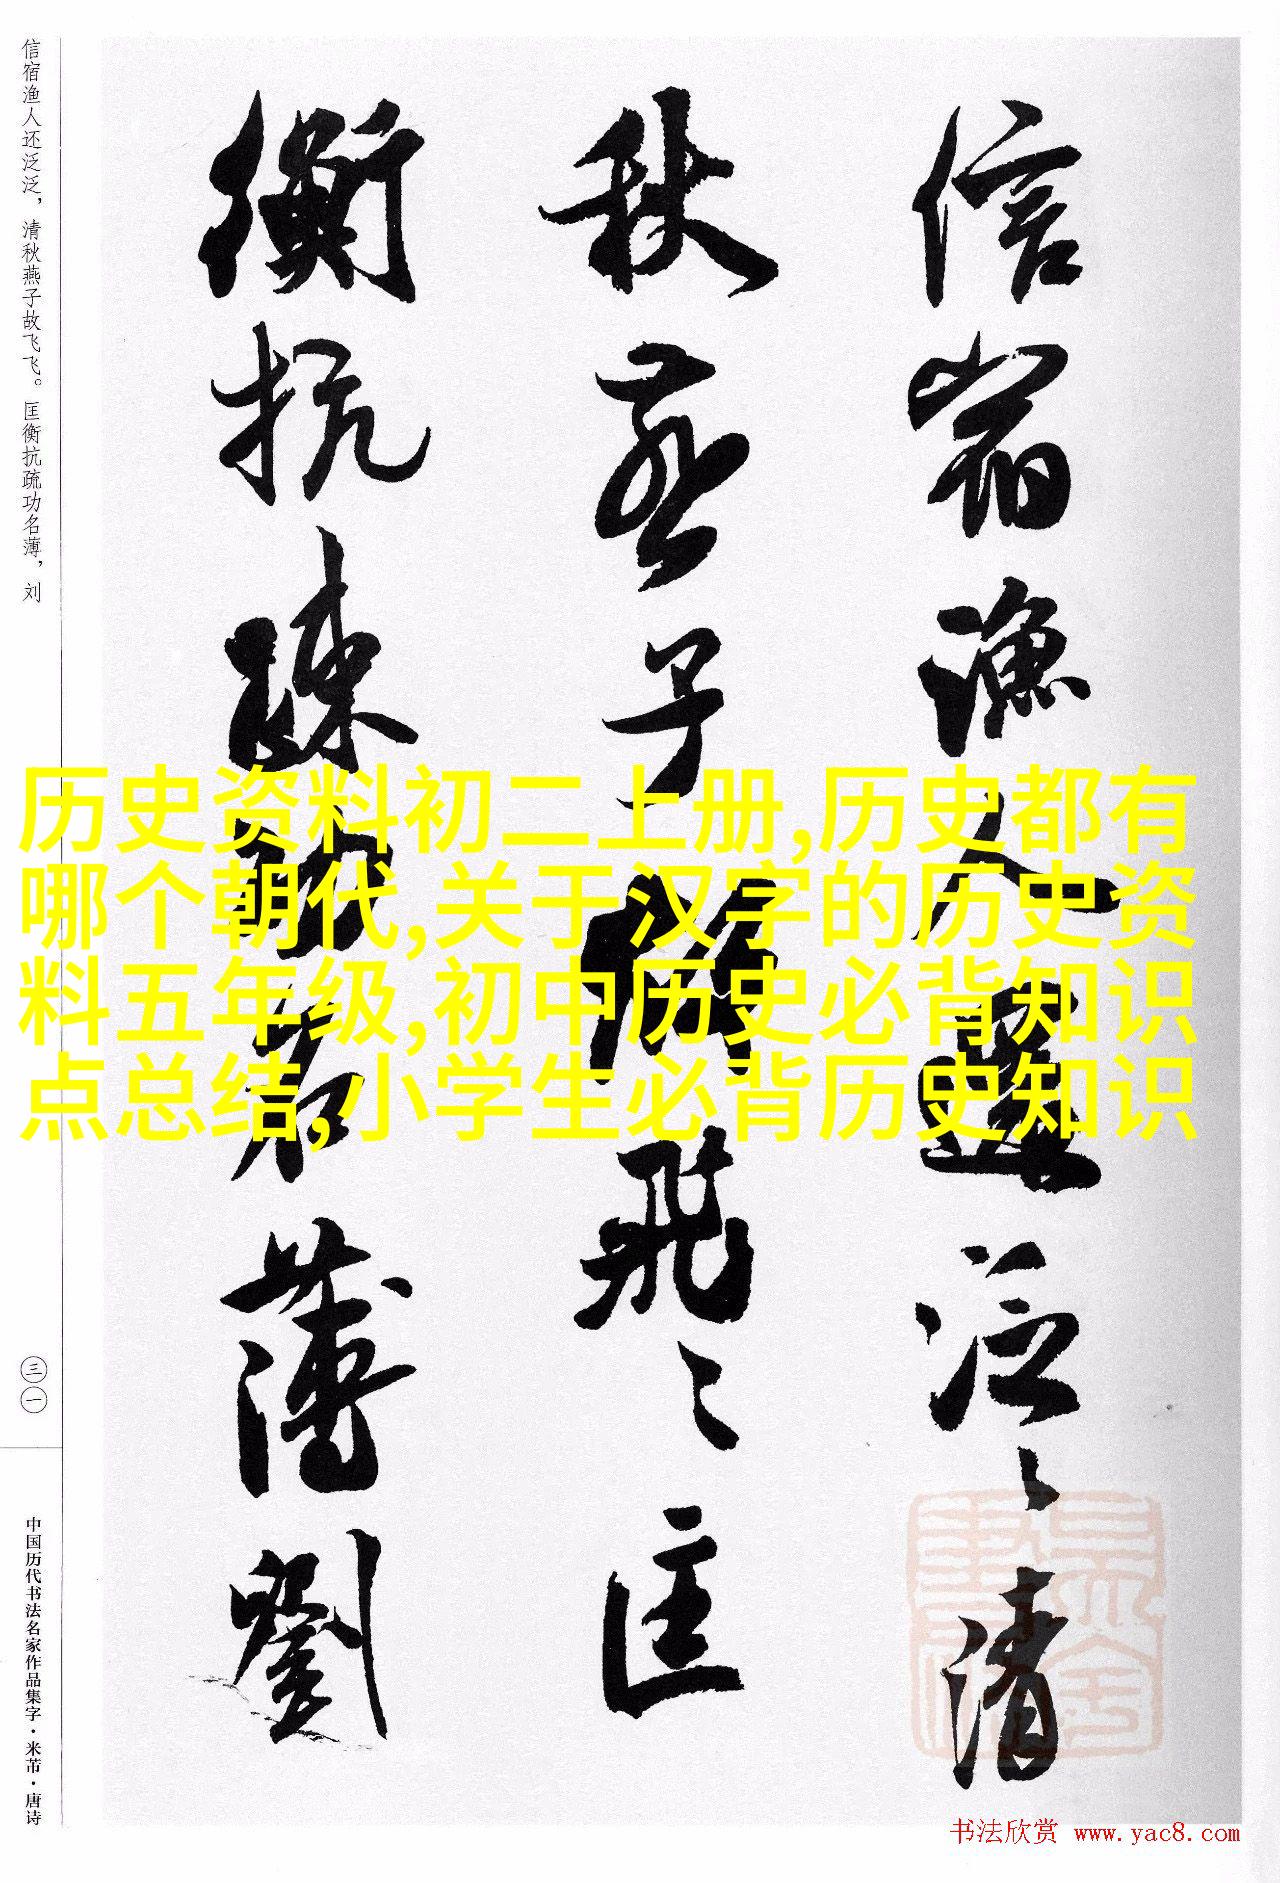 信宿渔人还泛泛，清秋燕子故飞飞。匡衡抗疏功名薄，刘
信宿渔人還泛〻清
秋燕子故飛〻匡
衡抗疏功名薄劉
历史资料初二上册,历史都有
哪个朝代,关于汉字的历史资
料五年级,初中历史必背知识
点总结,小学生必背历史知识
三一
中国历代书法名家作品集字·米芾·唐诗
书法欣赏 www.yac8.com